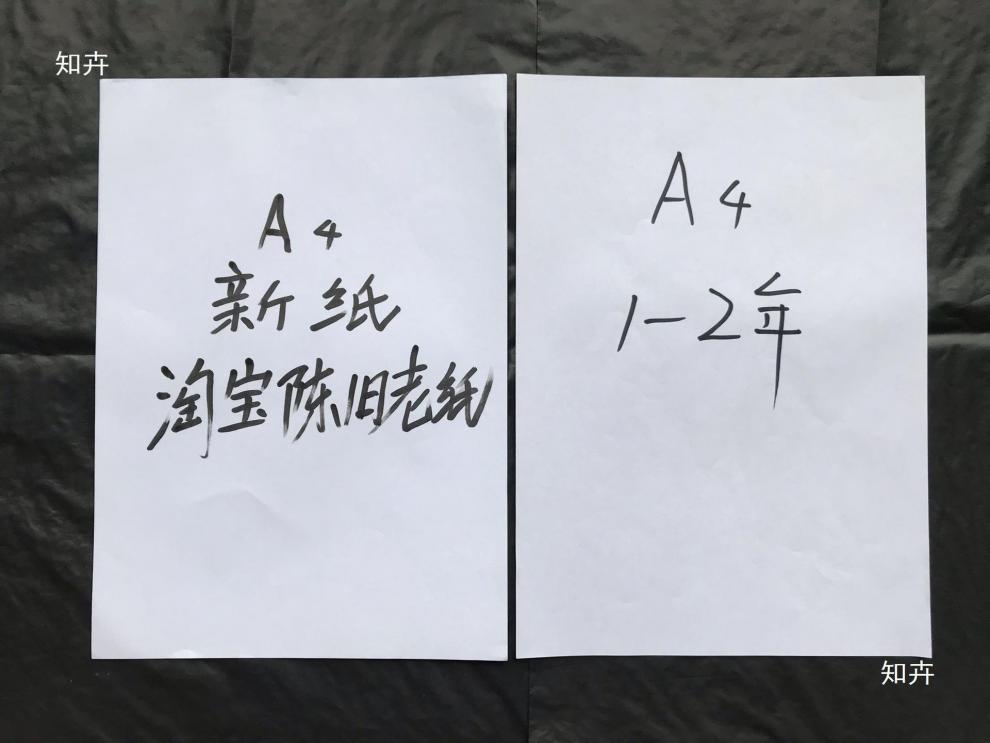 知卉
A4
新纸
淘宝陈旧老纸
A4
1-2年
知卉